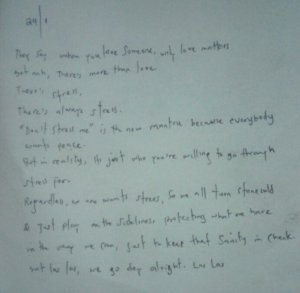 24/1
They say when you love someone, only love matters
but nah, There's more than love
There's stress,
There's always stress.
"Don't stress me" is the new mantra because everybody
wants peace.
But in reality, It's just who you're willing to go through
stress for.
Regardless, no one wants stress, So we all turn stonecold
& just play on the sidelines protecting what we have
in the way we can, just to keep that Sanity in check.
but las las, we go dey alright. Las Las